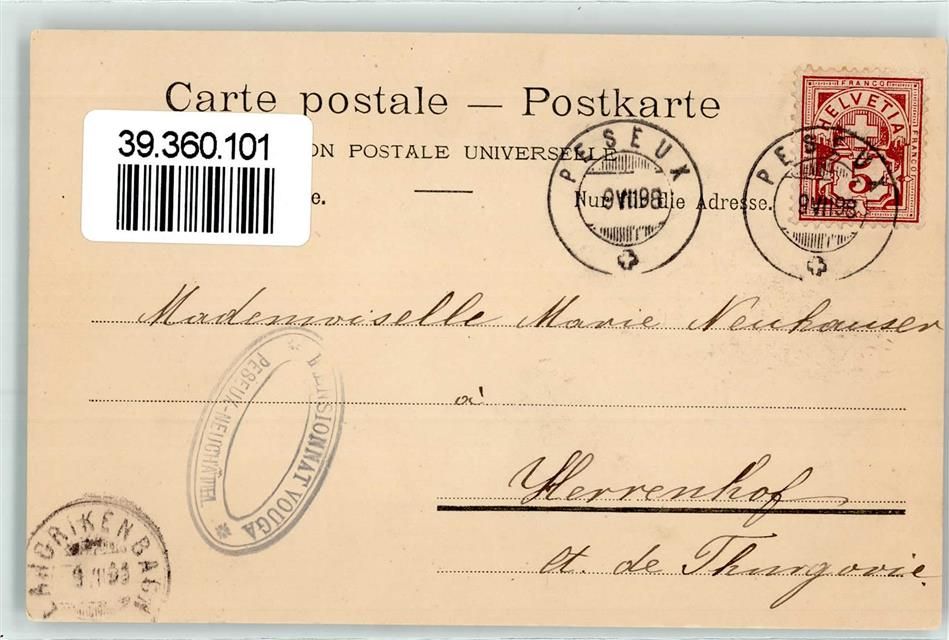 Carte postale — Postkarte
39.360.101
ON POSTALE UNIVERSELLE
e.
Nur für die Adresse.
FRANCO
HELVETIA
FRANCO
5
PESEUX
9 VII 98
PESEUX
9 VII 98
Mademoiselle Marie Neuhauser
à
Herrenhof
ct. de Thurgovie.
PENSIONNAT VOUGA
PESEUX-NEUCHÂTEL
LANGRIKENBACH